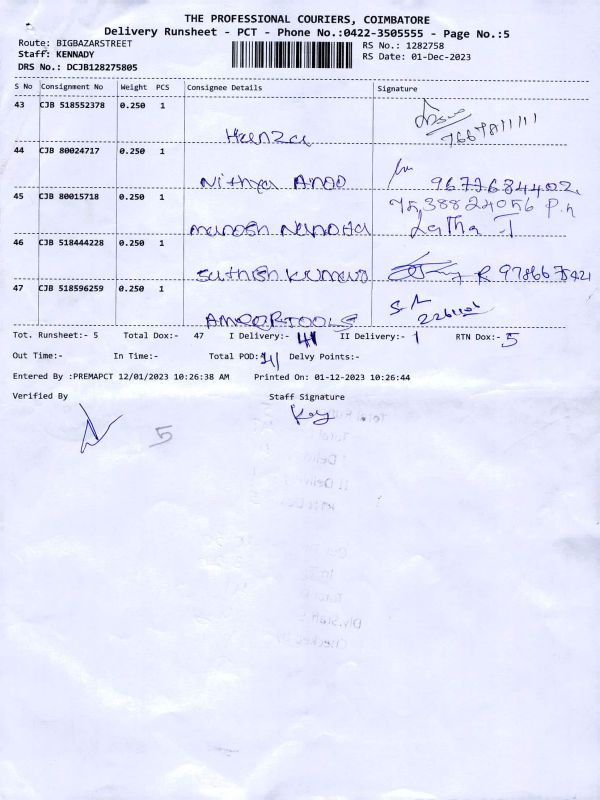 THE PROFESSIONAL COURIERS, COIMBATORE
Delivery Runsheet - PCT - Phone No.:0422-3505555 - Page No.:5
Route: BIGBAZARSTREET
RS No.: 1282758
Staff: KENNADY
RS Date: 01-Dec-2023
DRS No.: DCJB128275805
S No Consignment No Weight PCS Consignee Details Signature
43 CJB 518552378 0.250 1
Hanza
44 CJB 80024717 0.250 1
Nithya Anoo 9677684402
45 CJB 80015718 0.250 1 9538824056 P.n
manosh Nanotta Latha T
46 CJB 518444228 0.250 1
Sathish Kumar
47 CJB 518596259 0.250 1
AMEERTOOLS
Tot. Runsheet:- 5 Total Dox:- 47 I Delivery:- 41 II Delivery:- 1 RTN Dox:- 5
Out Time:- In Time:- Total POD: 41 Delvy Points:-
Entered By :PREMAPCT 12/01/2023 10:26:38 AM Printed On: 01-12-2023 10:26:44
Verified By Staff Signature
5